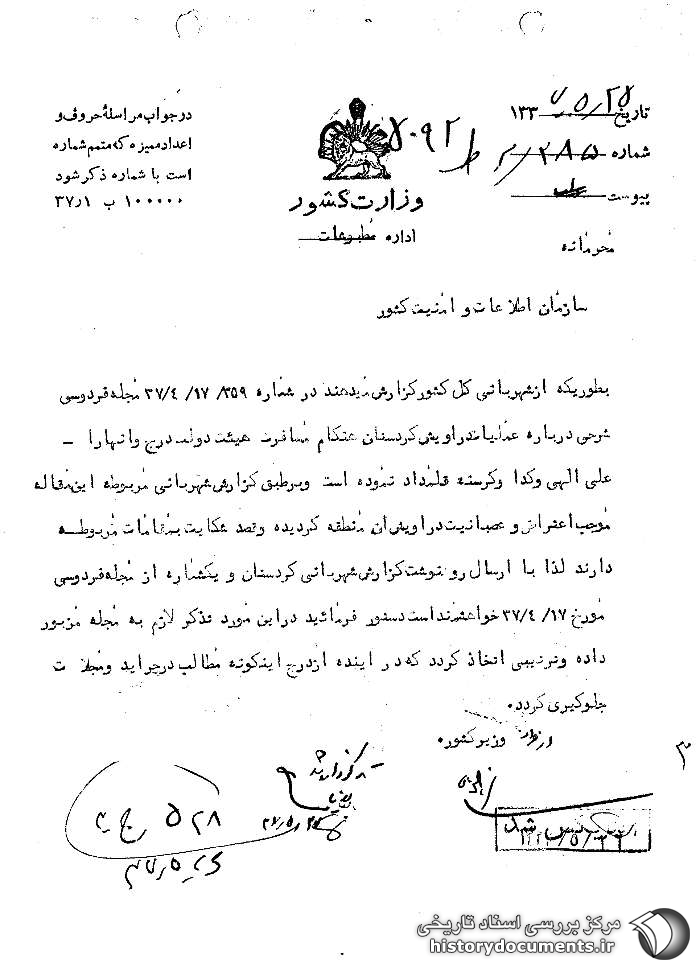 تاریخ ۱۳۳۷/۵/۲۵
شماره ۲/۲۸۵ ط ۵۰۹۲
پیوست
در جواب مراسله حروف و
اعداد ممیزه که متمم شماره
است با شماره ذکر شود
۳۷٫۱ ب ۱۰۰۰۰۰
وزارت کشور
اداره مطبوعات
محرمانه
سازمان اطلاعات و امنیت کشور
بطوریکه از شهربانی کل کشور گزارش میدهند در شماره ۳۵۹/ ۱۷/ ۳۷/۴ مجله فردوسی
شرحی درباره عملیات دراویش کردستان هنگام مسافرت هیئت دولت درج و انها را –
علی الهی و گدا و گرسنه قلمداد نموده است و برطبق گزارش شهربانی مربوطه این مقاله
موجب اعتراض و عصبانیت دراویش آن منطقه گردیده و قصد شکایت بمقامات مربوطه
دارند لذا با ارسال رونوشت گزارش شهربانی کردستان و یکشماره از مجله فردوسی
مورخ ۱۷/ ۳۷/۴ خواهشمند است دستور فرمائید در این مورد تذکر لازم به مجله مزبور
داده و ترتیبی اتخاذ گردد که در اینده از درج اینگونه مطالب در جراید و مجلات
جلوگیری گردد.
از طرف وزیر کشور.
۳
۵۲۸
مرکز بررسی اسناد تاریخی
historydocuments.ir